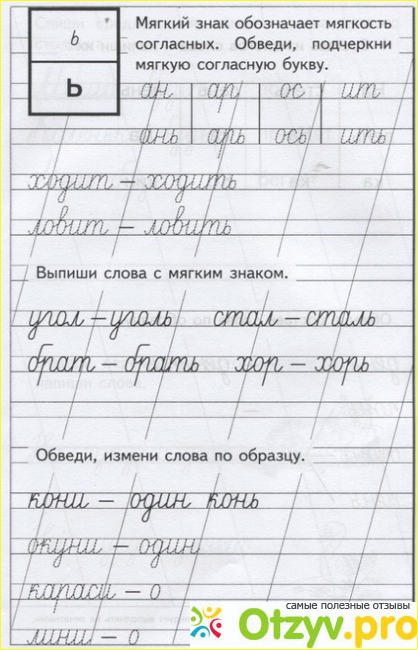 ь
Ь
Мягкий знак обозначает мягкость
согласных. Обведи, подчеркни
мягкую согласную букву.
ан ар ос ит
ань арь ось ить
ходит – ходить
ловит – ловить
Выпиши слова с мягким знаком.
угол – уголь стал – сталь
брат – брать хор – хорь
Обведи, измени слова по образцу.
кони – один конь
окуни – один
караси – о
лини – о
самые полезные отзывы
Otzyv.pro